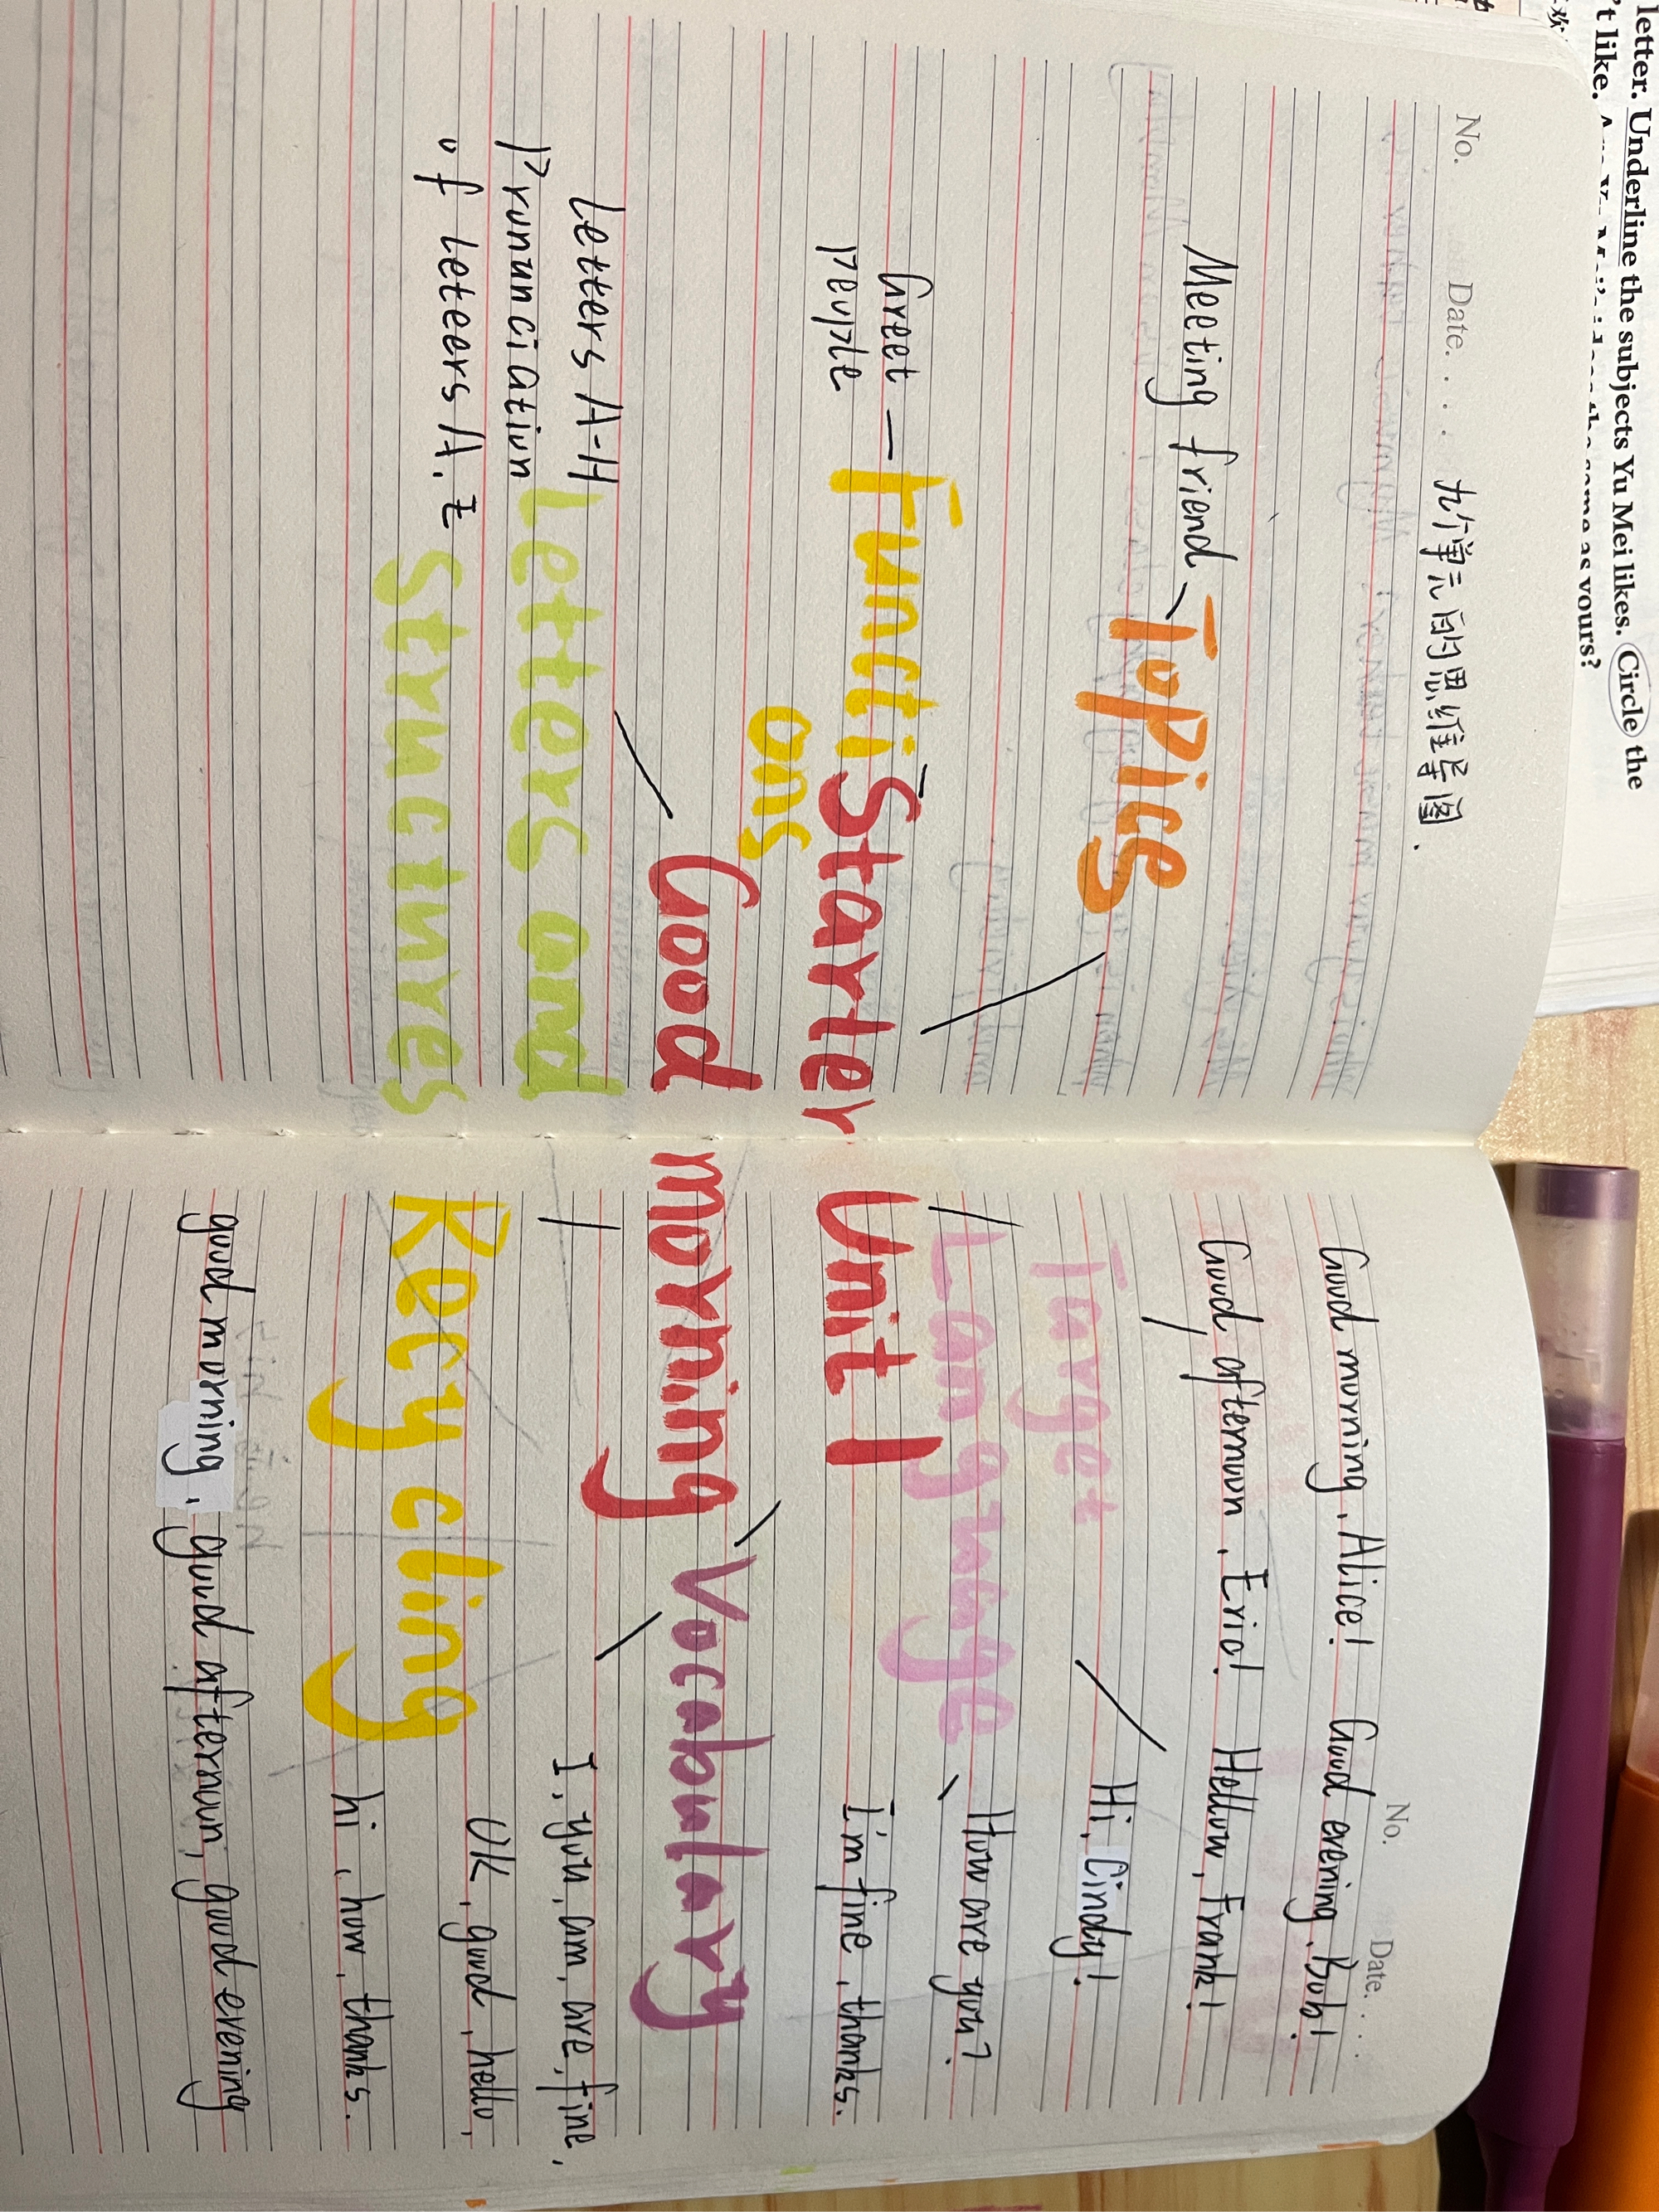 letter. Underline the subjects Yu Mei likes. Circle the
't like.
same as yours?
No.
Date. . . .
九个单元的思维导图.
Meeting friend
Topics
Greet — Functi
people
ons
Starter
Good
Letters A-H
Prununciatiun
of Leteers A. Z
Letters and
Structures
No.
Date. . . .
Good morning, Alice! Good evening, Bob!
Good afternoon, Eric! Hellow, Frank!
Target
Hi, Cindy!
Language
How are you?
I'm fine, thanks.
Unit 1
morning
Vocabulary
I, you, am, are, fine,
OK, good, hello,
hi, how, thanks.
Recycling
good morning, good afternoon, good evening